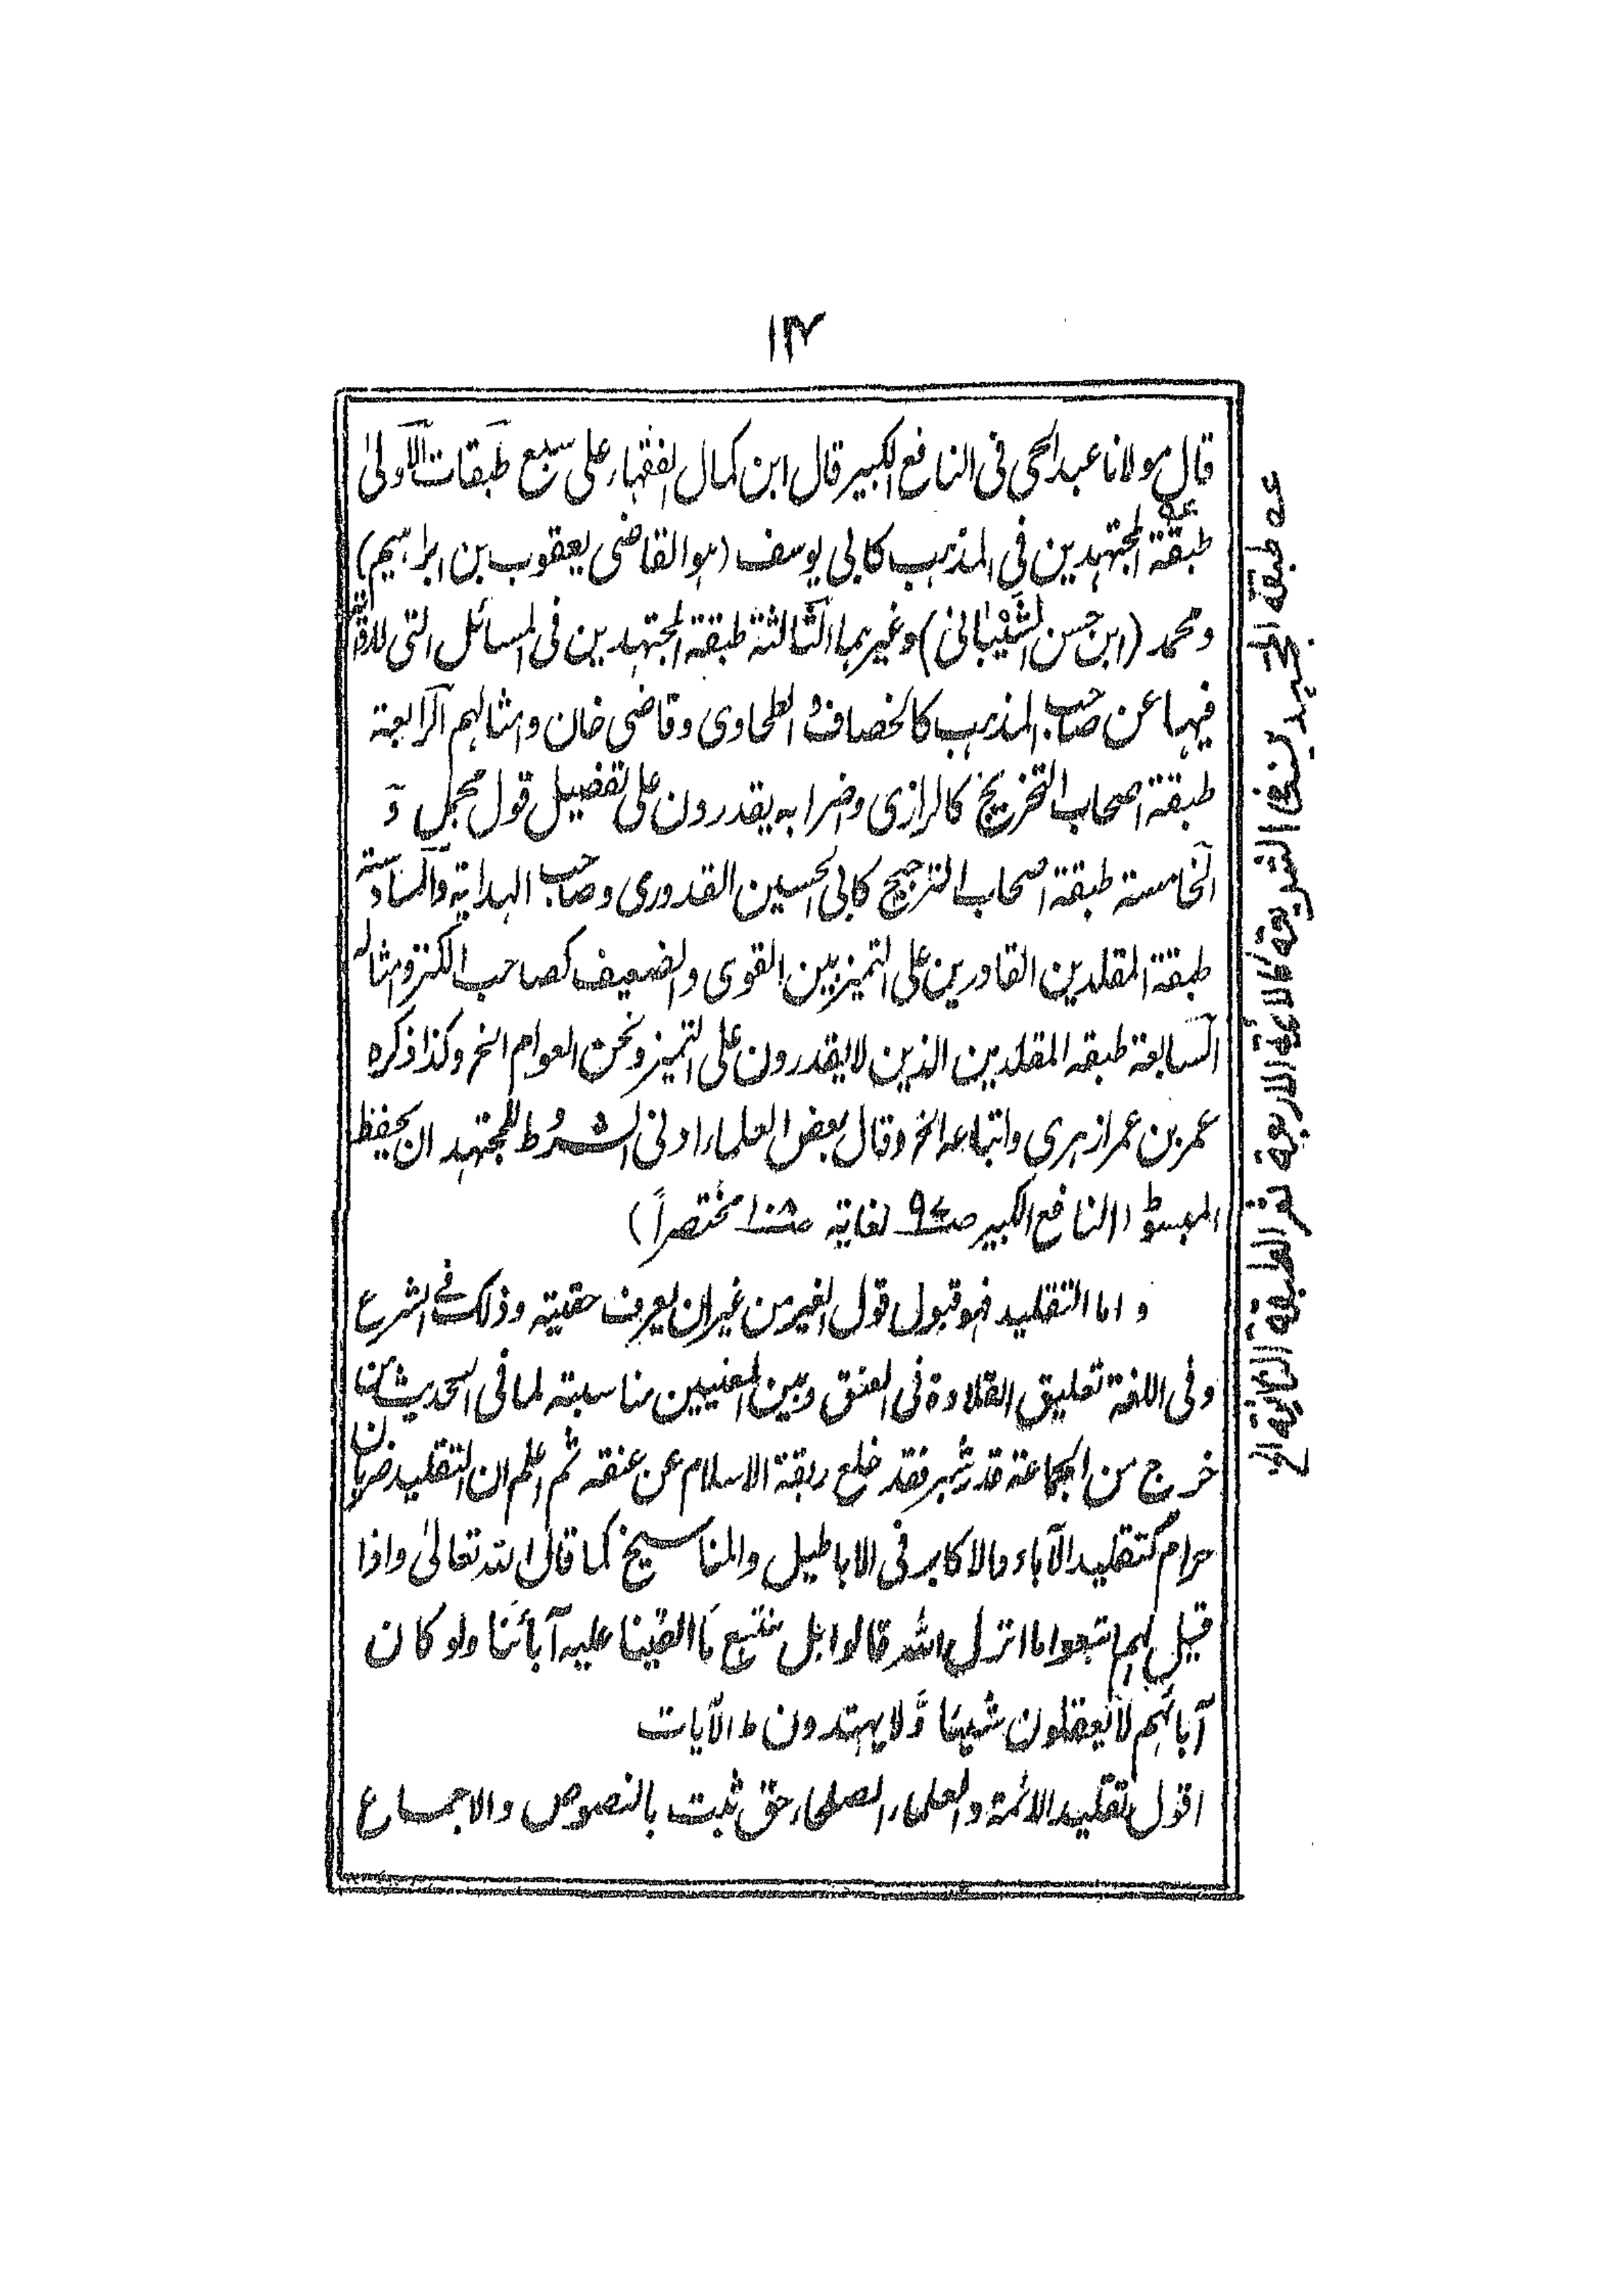 ١٣
قال مولانا عبدالحی فی النافع الکبیر قال ابن کمال الفقهاء علی سبع طبقات الاولیٰ
طبقة المجتہدین فی المذہب کابی یوسف (ہو القاضی یعقوب بن ابراہیم)
ومحمد (ابن حسن الشیبانی) وغیرہما الثالثة طبقة المجتہدین فی المسائل التی لا روایة
فیہا عن صاحب المذہب کالخصاف والطحاوی وقاضی خان وامثالہم الرابعة
طبقة اصحاب التخریج کالرازی واضرابہ یقدرون علی تفصیل قول مجمل و
الخامسة طبقة اصحاب الترجیح کابی الحسین القدوری وصاحب الہدایة والسادسة
طبقة المقلدین القادرین علی التمیز بین القوی والضعیف کصاحب الکنز وامثالہ
السابعة طبقہ المقلدین الذین لا یقدرون علی التمیز ونحن العوام الخ وکذا ذکرہ
عمر بن عمر ازہری واتباعہ الخ وقال بعض العلماء ادنی الشروط للمجتہد ان یحفظ
المبسوط (النافع الکبیر صـ٩٤ لغایة مختصراً)
و اما التقلید فہو قبول قول الغیر من غیر ان یعرف حقیتہ وذلک فی الشرع
وفی اللغة تعلیق القلادة فی العنق وبین المعنیین مناسبتہ لما فی الحدیث من
خرج من الجماعة قدر شبر فقد خلع ربقة الاسلام عن عنقہ ثم اعلم ان التقلید ضربان
حرام کتقلید الآباء والاکابر فی الاباطیل والمناسیخ کما قال اللہ تعالیٰ واذا
قیل لہم اتبعوا ما انزل اللہ قالوا بل نتبع ما الفینا علیہ آبائنا ولو کان
آبائہم لا یعقلون شیئا وّلا یہتدون ط الآیات
اقول تقلید الائمة والعلماء الصلحاء حق ثبت بالنصوص والاجماع
عہ طبقة المجتہد فی الشریعة کالائمة الاربعة ثم الطبقة الثانیة الخ